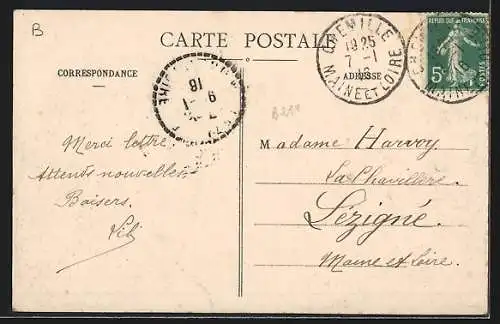 B
CARTE POSTALE
CORRESPONDANCE
ADRESSE
CHEMILLÉ
19 25
7 - 1
16
MAINE ET LOIRE
RÉPUBLIQUE FRANÇAISE
5c
POSTES
Merci lettre
Attends nouvelles.
Baisers.
Madame Harvoy
La Chavillère.
Lézigné.
Maine et Loire.